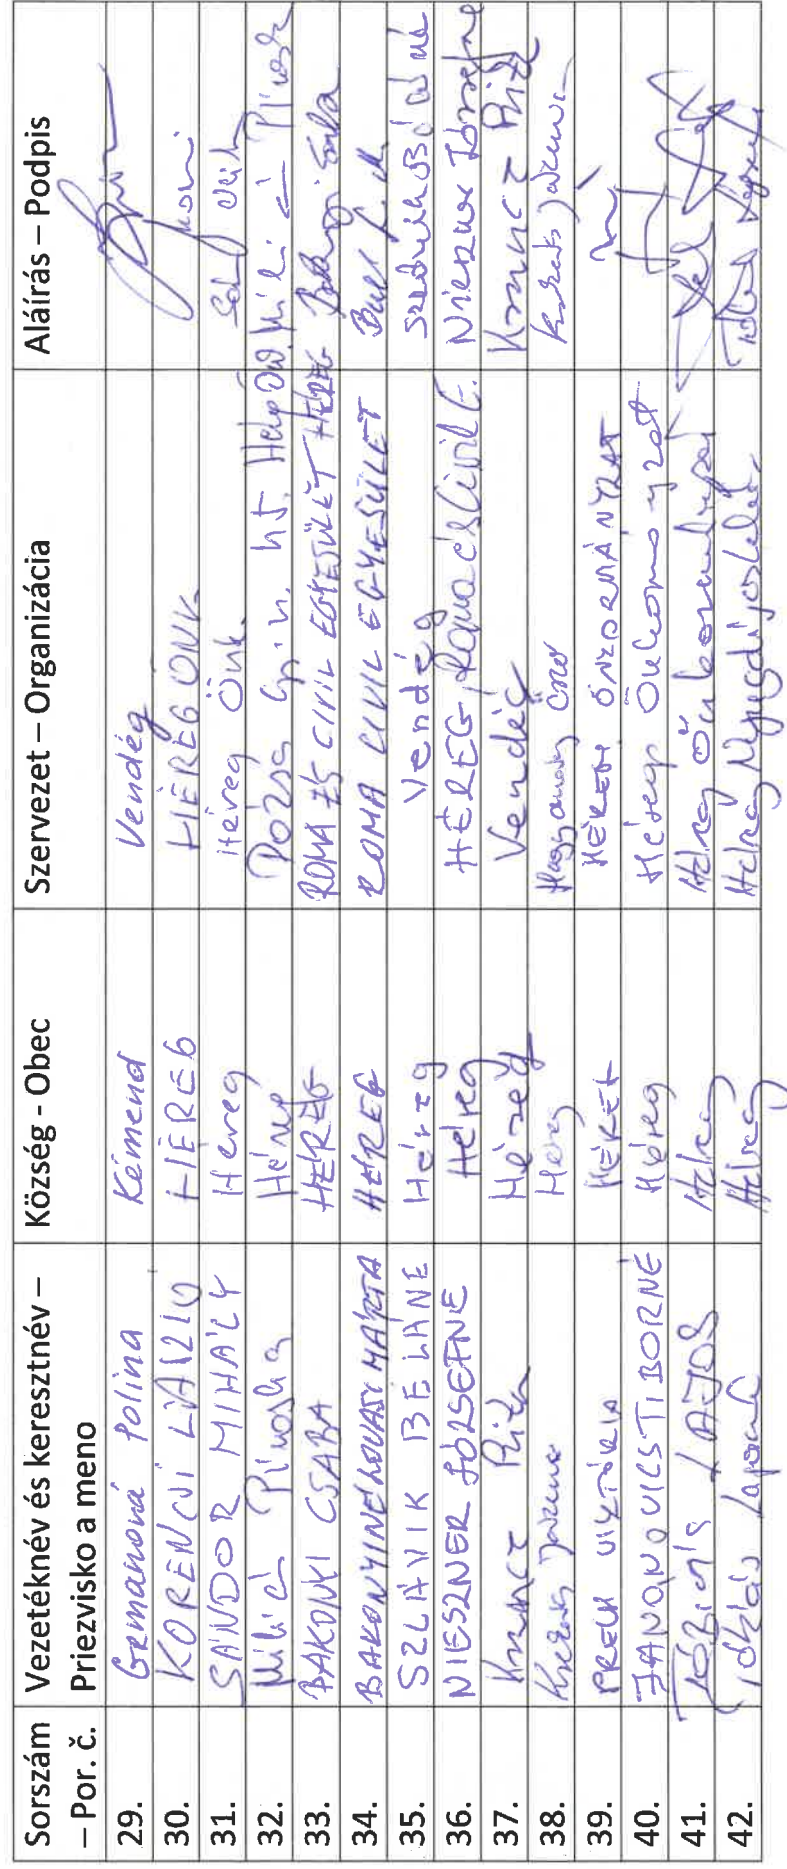 Sorszám Vezetéknév és keresztnév – Község - Obec Szervezet – Organizácia Aláírás – Podpis
– Por. č. Priezvisko a meno
29. Germanová Polina Kéménd Vendég
30. KORENCSI LÁSZLÓ HÉREG HÉREG ÖNK.
31. SÁNDOR MIHÁLY Héreg Héreg Önk.
32. Piroska Héreg Dózsa Gy. u. Piroska
33. BAKONYI CSABA HÉREG ROMA ÉS CIVIL EGYESÜLET HÉREG Bakonyi Csaba
34. BAKONYINÉ LOVASI MÁRTA HÉREG ROMA CIVIL EGYESÜLET
35. SZLÁVIK BÉLÁNÉ Héreg Vendég Szlávik Béláné
36. NIESZNER JÓZSEFNÉ Héreg HÉREG, Roma és Civil E. Nieszner Józsefné
37. Kruncz Rita Héreg Vendég Kruncz Rita
38. Héreg
39. PRECH VIKTÓRIA HÉREG HÉREGI ÖNKORMÁNYZAT
40. JANOVICS TIBORNÉ Héreg Héregi Önkormányzat
41. Tóbiás LAJOS Héreg Héreg Önkormányzat
42. Tóbiás Lajosné Héreg Héreg Nyugdíjasklub